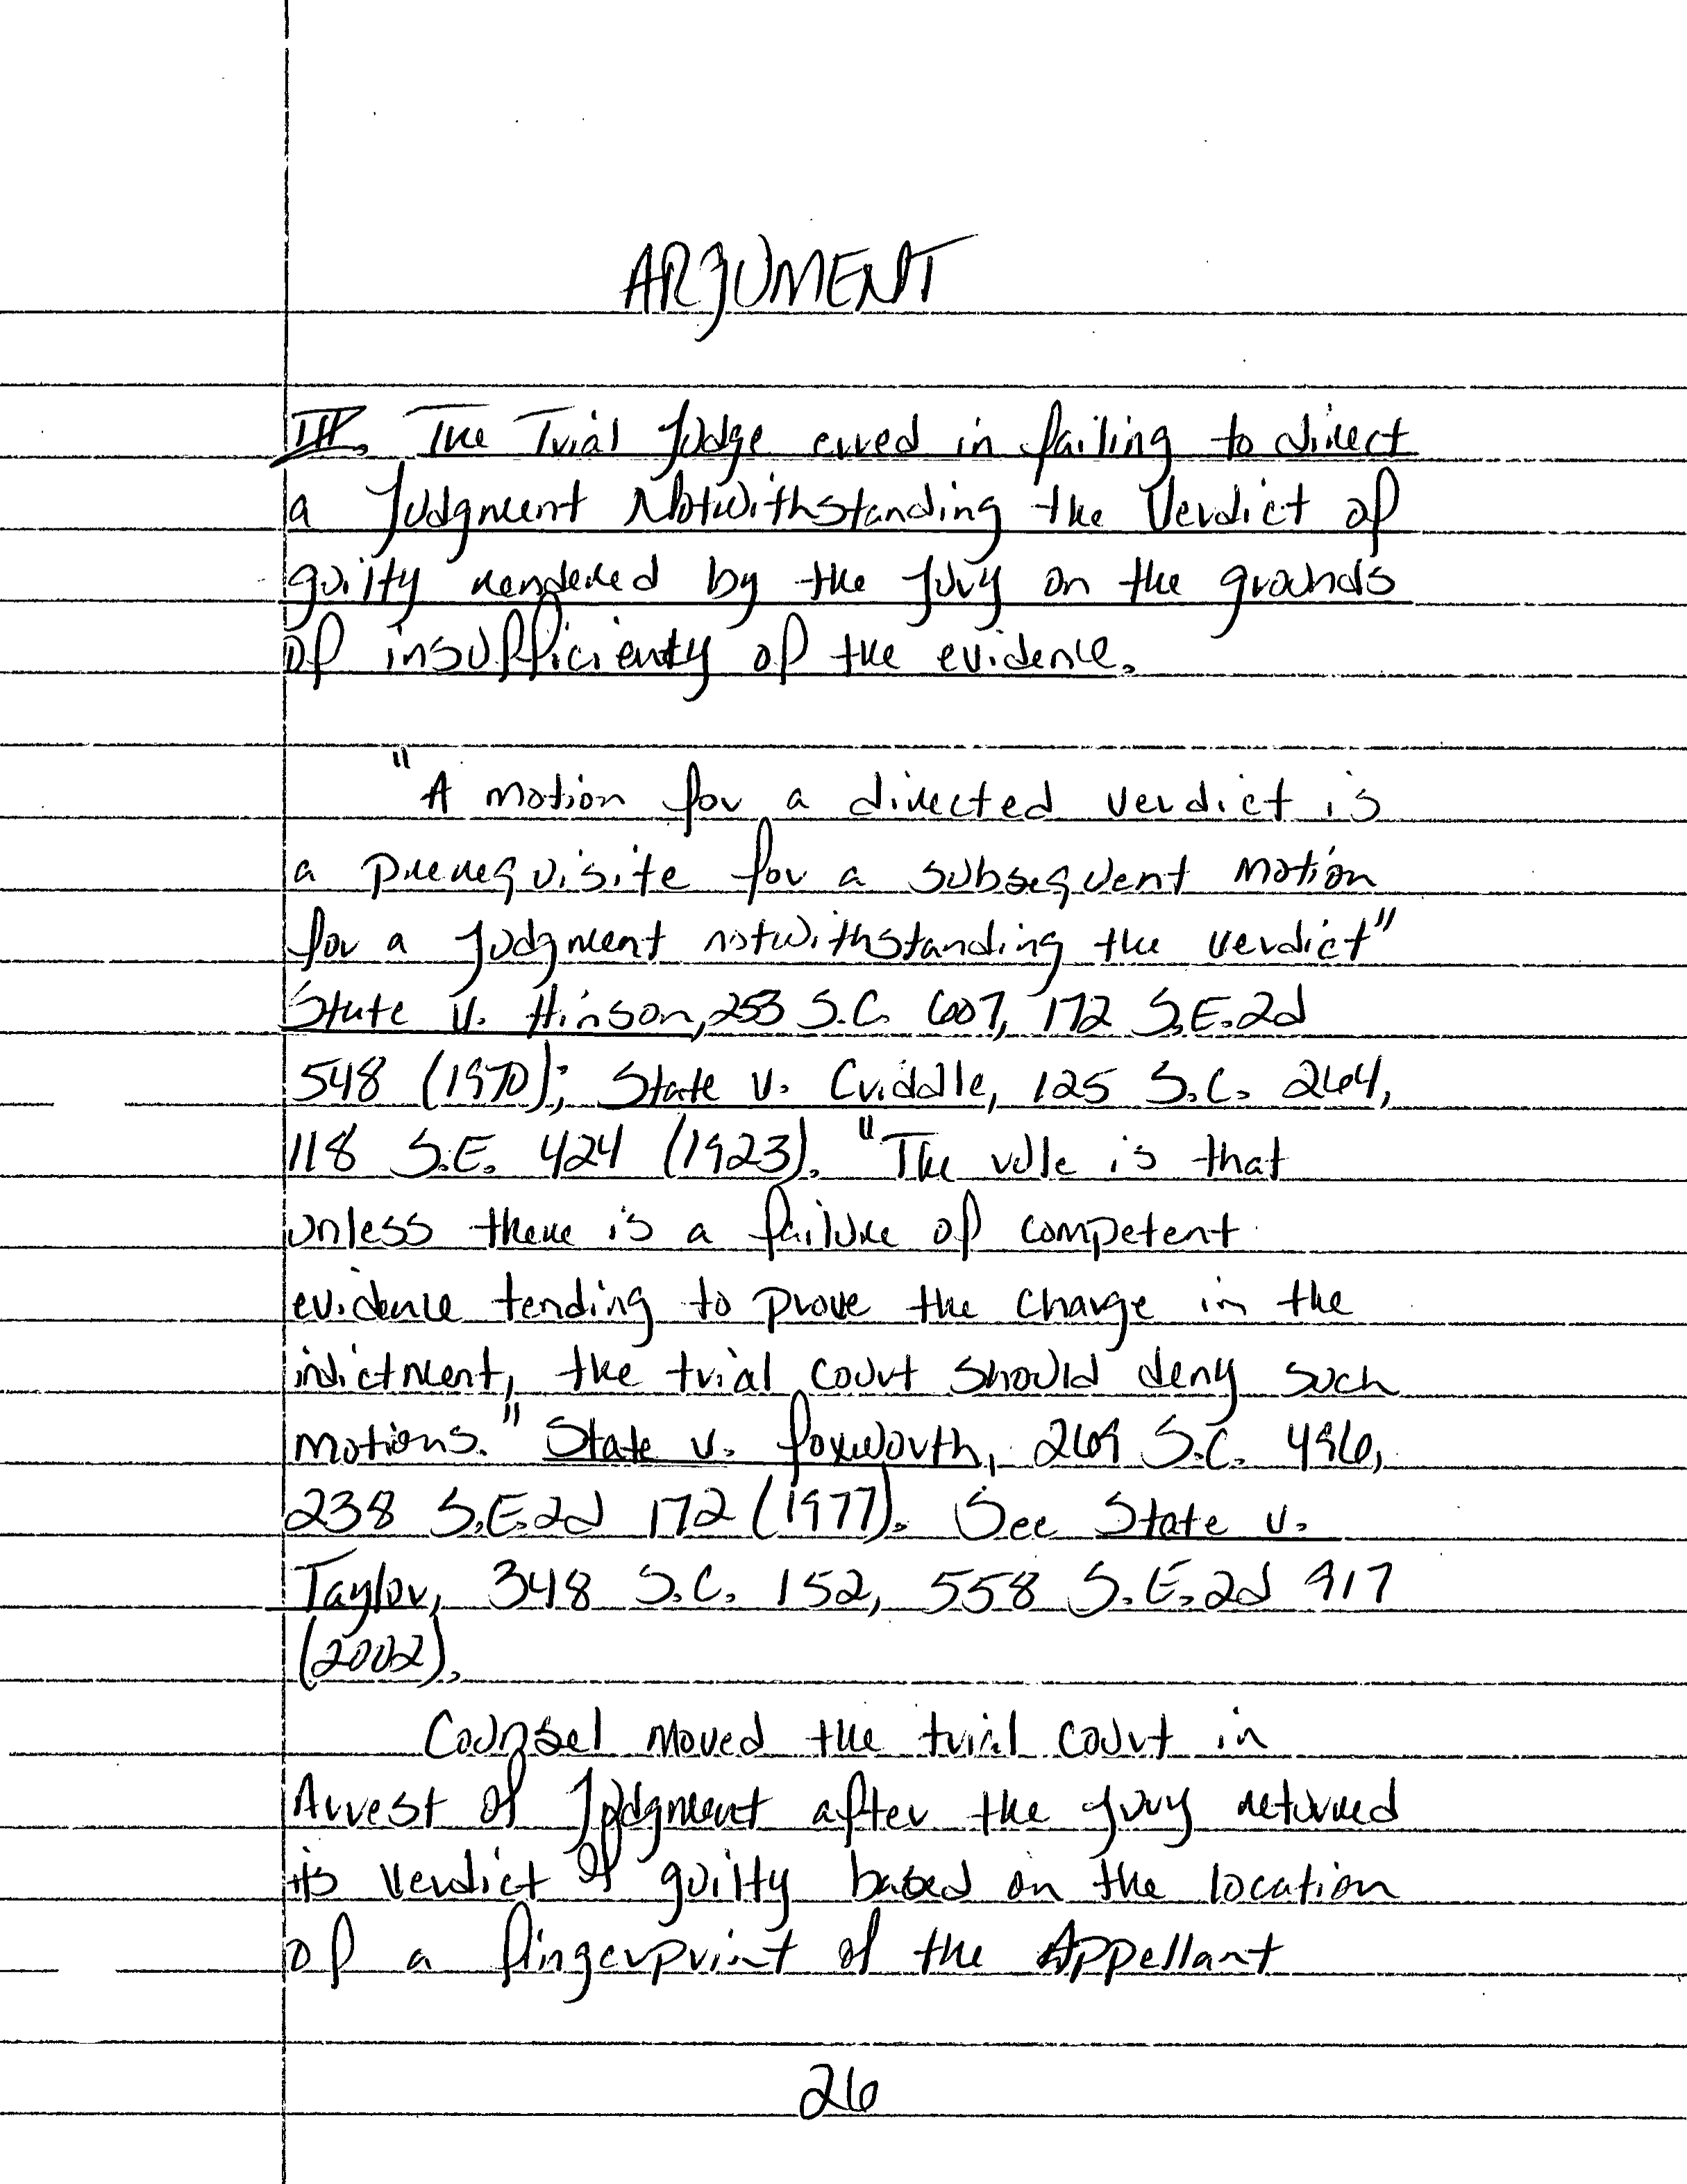 ARGUMENT
III. The Trial Judge erred in failing to direct
a Judgment Notwithstanding the Verdict of
guilty rendered by the Jury on the grounds
of insufficienty of the evidence.
"A motion for a directed verdict is
a prerequisite for a subsequent motion
for a Judgment notwithstanding the verdict"
State v. Hinson, 253 S.C. 607, 172 S.E.2d
548 (1970); State v. Criddle, 125 S.C. 264,
118 S.E. 424 (1923). "The rule is that
unless there is a failure of competent
evidence tending to prove the charge in the
indictment, the trial court should deny such
motions." State v. foxworth, 269 S.C. 496,
238 S.E.2d 172 (1977). See State v.
Taylor, 348 S.C. 152, 558 S.E.2d 917
(2002).
Counsel moved the trial court in
Arrest of Judgment after the jury returned
its verdict of guilty based on the location
of a fingerprint of the Appellant
26